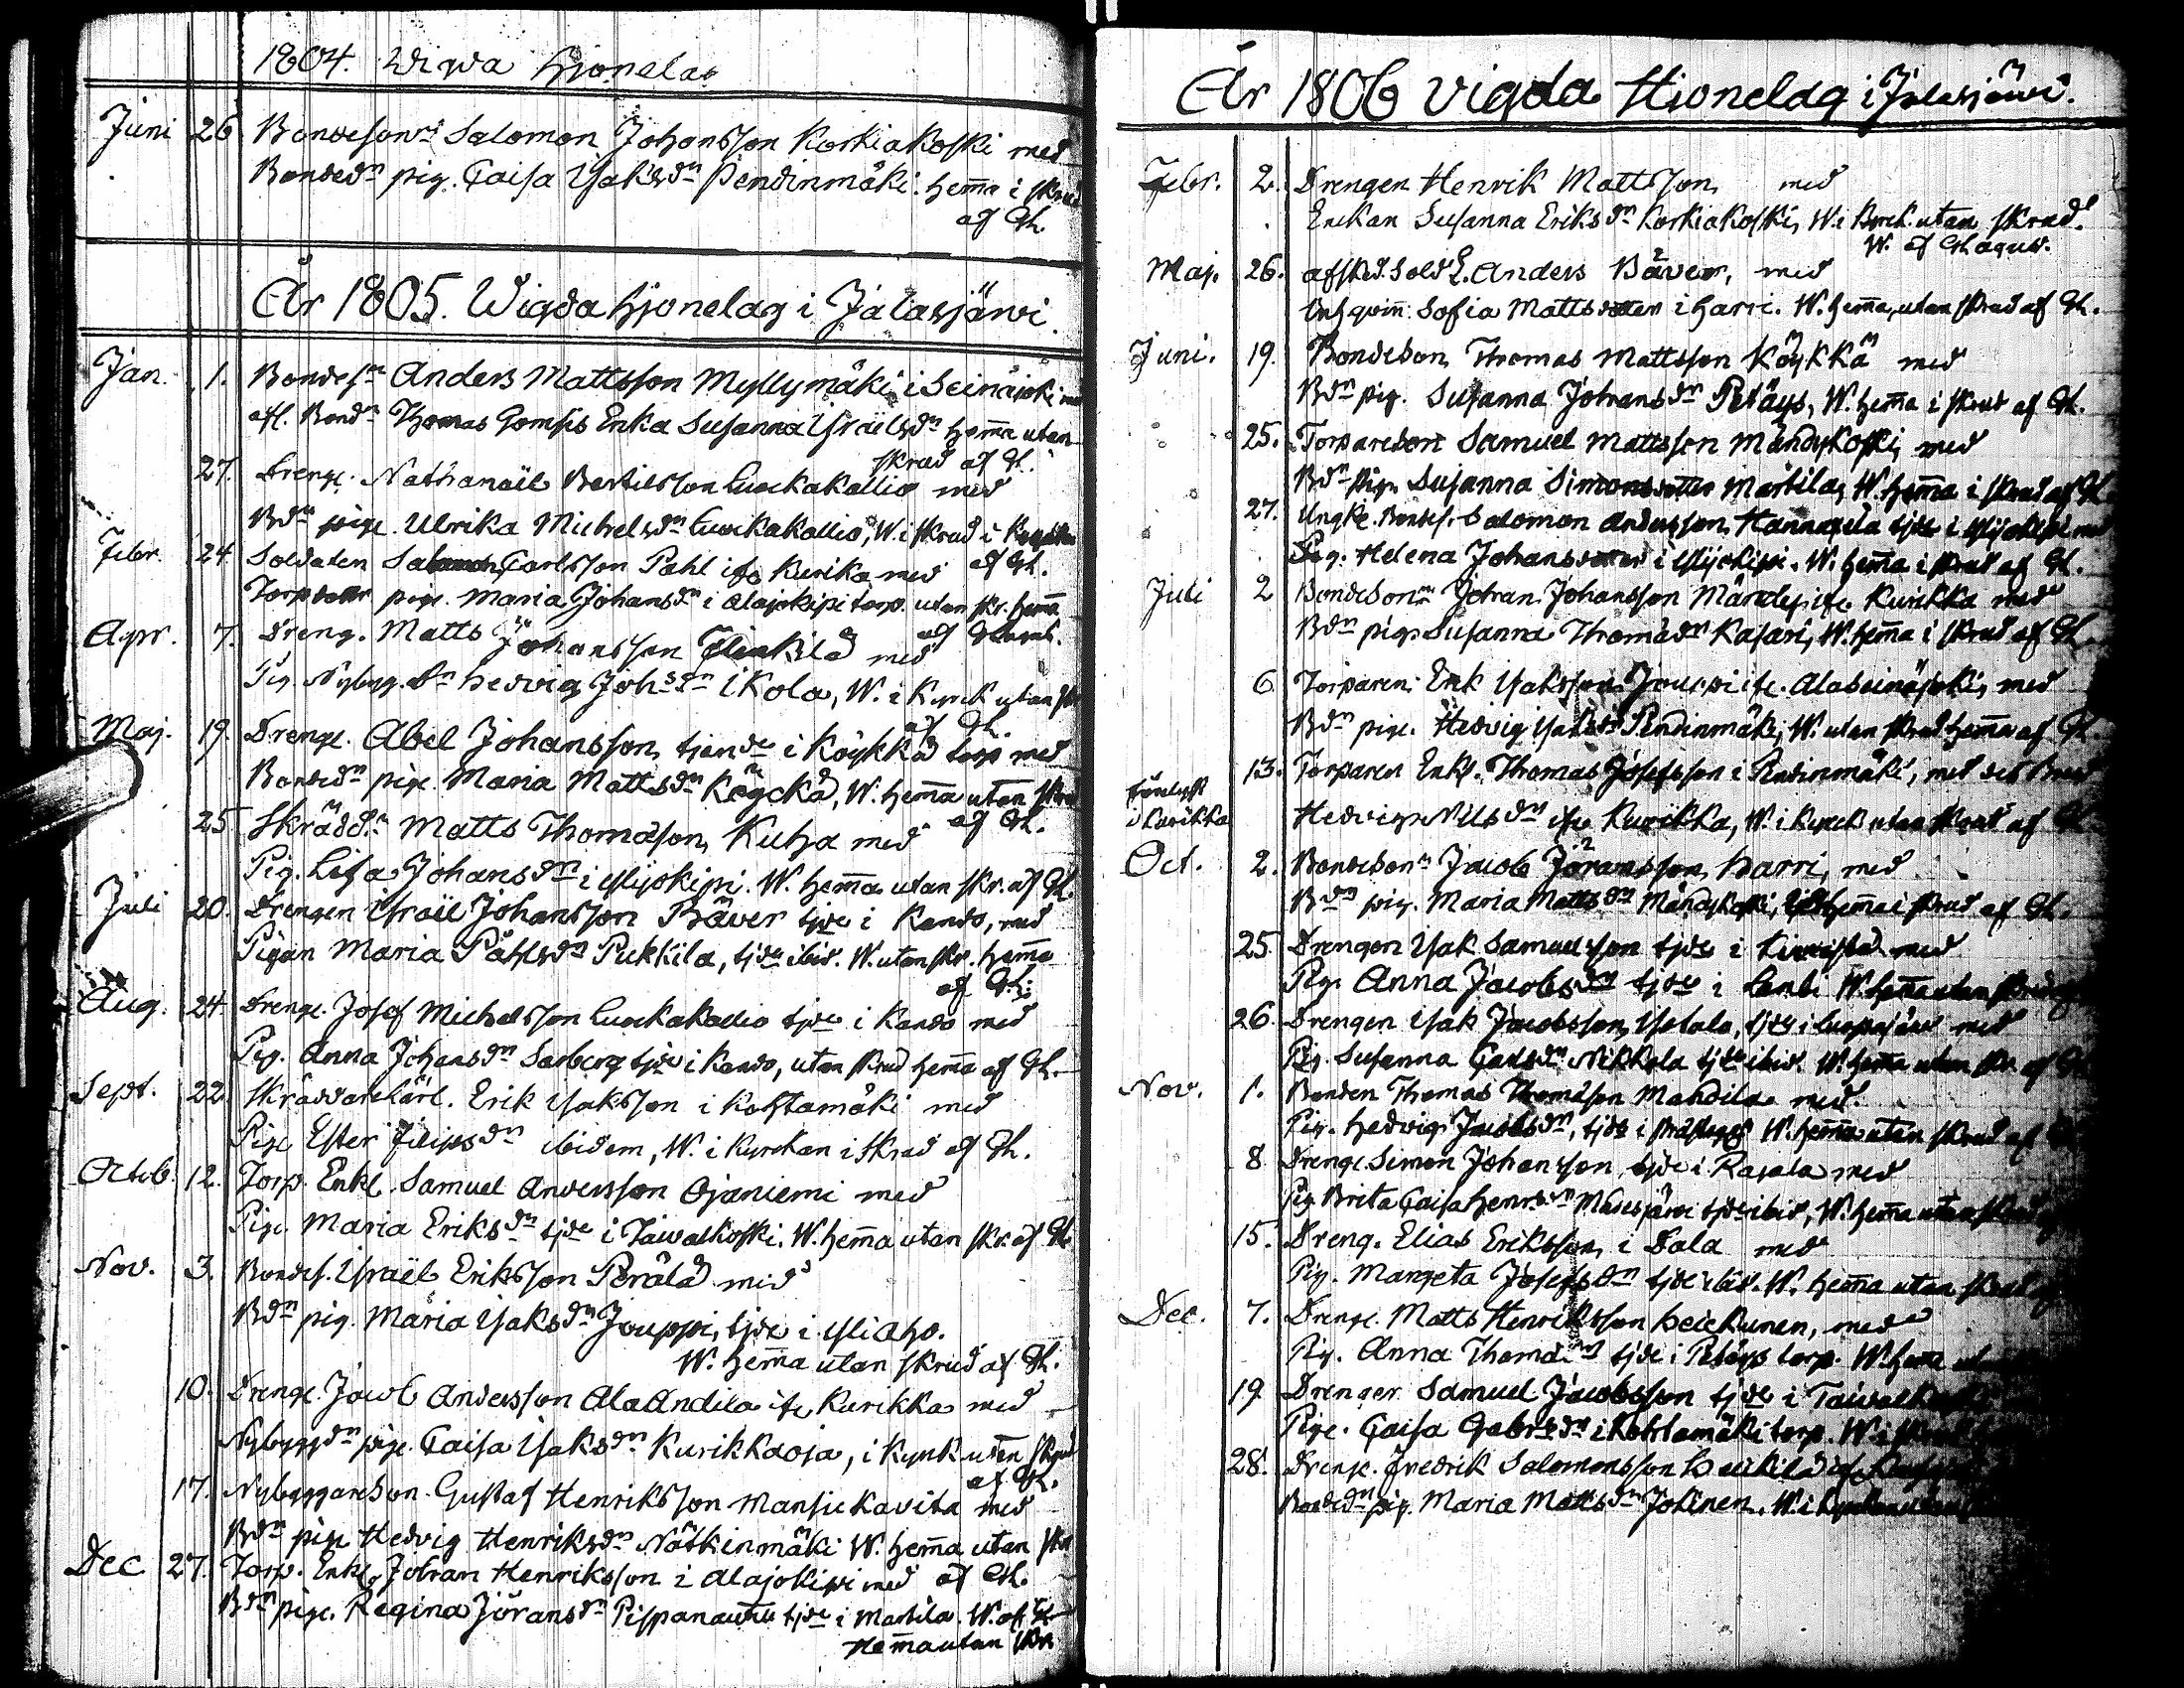 1804. Wigda Hjonelag
Juni 26 Bondeson Salomon Johansson Korkiakoski med
Bondedn pig. Caisa Isaksdn Pendinmäki. hemma i skrud
af Gh.
År 1805. Wigda Hjonelag i Jalasjärvi.
Jan. 1. Bondesn Anders Mattsson Myllymäki i Seinäjoki med
afl. Bondn Thomas Gomsis Enka Susanna Israelsdn hemma utan
skrud af Gh.
27. Drenge. Nathanaël Bertilsson Luokakallio med
Bdn pige. Ulrika Michelsdn Luokakallio, W. i skrud i
af Gh.
Febr. 24. Soldaten Carlsson Pahl ifr. Kurika med
Torp pige. Maria Johansdn i Alajokipi torp. utan skr. hemma
af
Apr. 7. Dreng. Matts Johansson Flinkilä med
Pig. Nybyg. dn Hedvig Johsdn Ikola, W. i Kyrck utan skr
af Gh.
Maj. 19. Drenge. Abel Johansson tjende i Köykkä torp med
Bondedn pige. Maria Mattsdn Köyckä, W. hemma utan skrud
af Gh.
25 Skrädd. Matts Thomasson Kuha med
Pig. Lisa Johansdn i Ylijokipi. W. hemma utan skr. af Gh.
Juli 20. Drengen Israël Johansson Bäver tjde i Kando, med
Pigan Maria Påhlsdn Pukkila, tjde ibid. W. utan skr. hemma
af Gh.
Aug. 24. Drenge. Josef Michelsson Luokakallio tjde i Kando med
Pig. Anna Johansdn Sarberg tjde i Kando, utan skrud hemma af Gh.
Sept. 22. Skräddarekarl. Erik Isaksson i Kohtamäki med
Pige Ester Filipsdn ibidem, W. i Kyrckan i skrud af Gh.
Octob. 12. Torp. Enkl. Samuel Andersson Ojaniemi med
Pige. Maria Eriksdn tjde i Taivalkoski. W. hemma utan skr. af Gh.
Nov. 3. Bondes. Israël Eriksson Perälä med
Bdn pig. Maria Isaksdn Jouppi, tjde i Yliaho.
W. hemma utan skrud af Gh.
10. Drenge. Jacob Andersson AlaAndila ifr. Kurikka med
Nybyggdn pige. Caisa Isaksdn Kurikkaoja, i Kyrck utan skrud
af Gh.
17. Nybyggareson Gustaf Henriksson Mansickavita med
Bdn pige Hedvig Henriksdn Nätkinmäki W. hemma utan skr
Dec 27. Torp. Enkl. Johan Henriksson i Alajokipi med af Gh.
Bdn pige. Regina Jöransdn tjde i Martila. W. af Gh
hemma utan skr
År 1806 vigda Hionelag i Jalasjärvi.
Febr. 2. Drengen Henrik Mattsson, med
Enckan Susanna Eriksdn Korkiakoski, W. i Kyrck. utan skrud.
W. af
Maj. 26. afsked. Sold. Anders Bäver, med
Sofia Mattsdotter i Harri. W. hemma, utan skrud af Gh.
Juni. 19. Bondeson Thomas Mattsson Köykkä med
Bdn pig. Susanna Johansdn Petäys, W. hemma i skrud af Gh.
25. Torpareson Samuel Mattsson Mändykoski, med
Bdn pige Susanna Simonsdotter Martila, W. hemma i skrud af Gh
27. Ungke. Bondes. Salomon Andersson Hannuxela tjde i Ylijokipi med
Pig. Helena Johansdotter i Ylijokipi. W. hemma i skrud af Gh.
Juli 2 Bondeson Johan Johansson ifr. Kurikka med
Bdn pige Susanna Thomasdn Kasari, W. hemma i skrud af Gh.
6 Torparen Erik Isaksson Jouppi ifr. Alaseinäjoki, med
Bdn pige. Hedvig Isaksdn Pendinmäki, W. utan skrud hemma af Gh.
13. Torparen Enkl. Thomas Josefsson i Pendinmäki, med
i Kurikka Hedvig Nilsdn ifr Kurikka, W. i Kyrck utan skrud af Gh
Oct. 2. Bondeson Jacob Jöransson Harri, med
Bdn pig. Maria Mattsdn Mändykoski, hemma i skrud af Gh.
25. Drengen Isak Samuelsson tjde i med
Pig. Anna Jacobsdn tjde i W. hemma utan
26. Drengen Isak Jacobsson Ylitalo, tjde i Luopajärvi med
Pig. Susanna Carlsdn Nikkola tjde ibid. W. hemma utan skr. af Gh
Nov. 1. Bonden Thomas Thomasson Mandila med
Pig. Hedvig Jacobsdn, tjde i W. hemma utan skrud af
8 Drenge. Simon Johansson tjde i Rajala med
Pig Brita Caisa Henrsdn tjde ibid, W. hemma utan
15. Dreng. Elias Eriksson i Dala med
Pig. Margeta Josefsdn tjde ibid. W. hemma utan skrud
Dec. 7. Drenge. Matts Henriksson Heickunen, med
Pig. Anna Thomasdn tjde i Petäys torp. W. hemma
19. Drengen Samuel Jacobsson tjde i
Pige. Caisa Gabrsdn i Kohtamäki torp. W. i
28. Drenge. Fredrik Salomonsson
Bondedn pig. Maria Mattsdn Jokinen. W. i